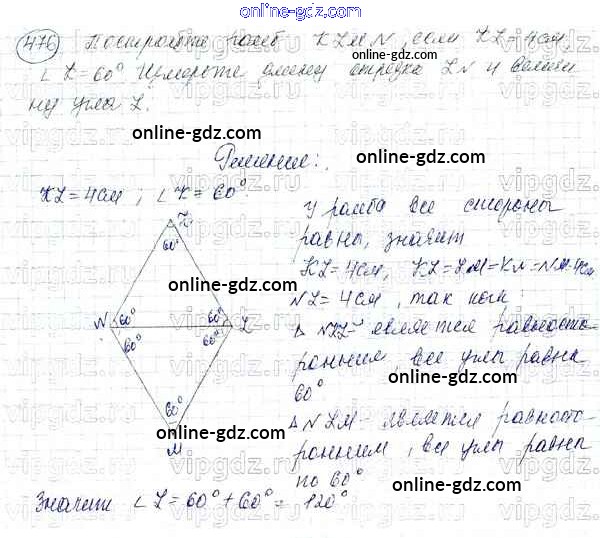 online-gdz.com
476 Постройте ромб KLMN, если KL=4см,
∠K=60° Измерьте длину отрезка LN и величи
ну угла L.
online-gdz.com
online-gdz.com
online-gdz.com
Решение:
KL=4см; ∠K=60°.
У ромба все стороны
равны, значит
KL=4см, KL=LM=KN=NM=4см
NL=4см, так как
является равносто-
ронним, все углы равны
60°
△NLM- является равност-
ронним, все углы равны
по 60°
K
60°
N 60° 60° L
60° 60°
60°
M
online-gdz.com
online-gdz.com
online-gdz.com
online-gdz.com
online-gdz.com
online-gdz.com
online-gdz.com
Значит ∠L=60°+60°= 120°
online-gdz.com
vipgdz.ru